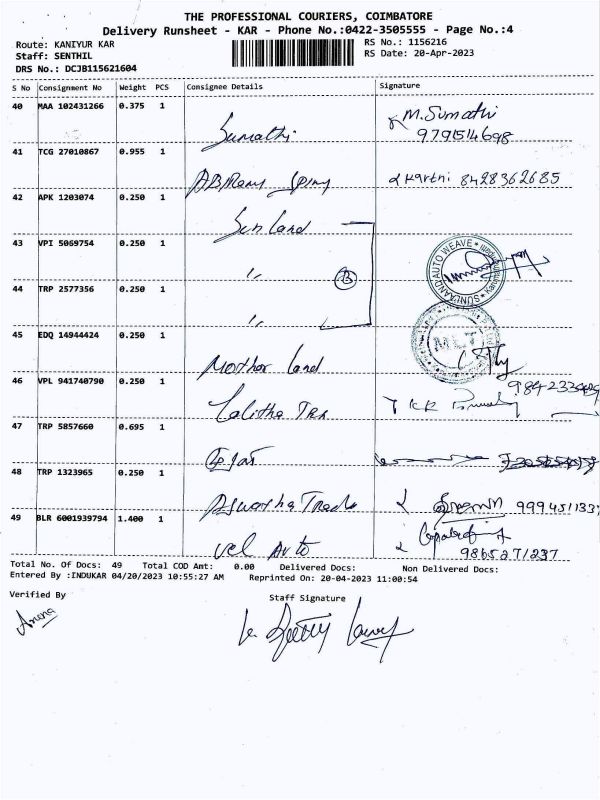 THE PROFESSIONAL COURIERS, COIMBATORE
Delivery Runsheet - KAR - Phone No.:0422-3505555 - Page No.:4
Route: KANIYUR KAR
Staff: SENTHIL
DRS No.: DCJB115621604
RS No.: 1156216
RS Date: 20-Apr-2023
S No Consignment No Weight PCS Consignee Details Signature
40 MAA 102431266 0.375 1
Sumathi
M.Sumathi
9791514698
41 TCG 27010867 0.955 1
Karthi 8428362685
42 APK 1203074 0.250 1
Sun Land
43 VPI 5069754 0.250 1
〃
B
SUNLAAND AUTO WEAVE
44 TRP 2577356 0.250 1
〃
45 EDQ 14944424 0.250 1
Mother Land
MLT
46 VPL 941740790 0.250 1
Lalitha Trs
47 TRP 5857660 0.695 1
48 TRP 1323965 0.250 1
Aswatha Trade
49 BLR 6001939794 1.400 1
Vel Auto
9865271237
Total No. Of Docs: 49 Total COD Amt: 0.00 Delivered Docs: Non Delivered Docs:
Entered By :INDUKAR 04/20/2023 10:55:27 AM Reprinted On: 20-04-2023 11:00:54
Verified By
Staff Signature
Aruna